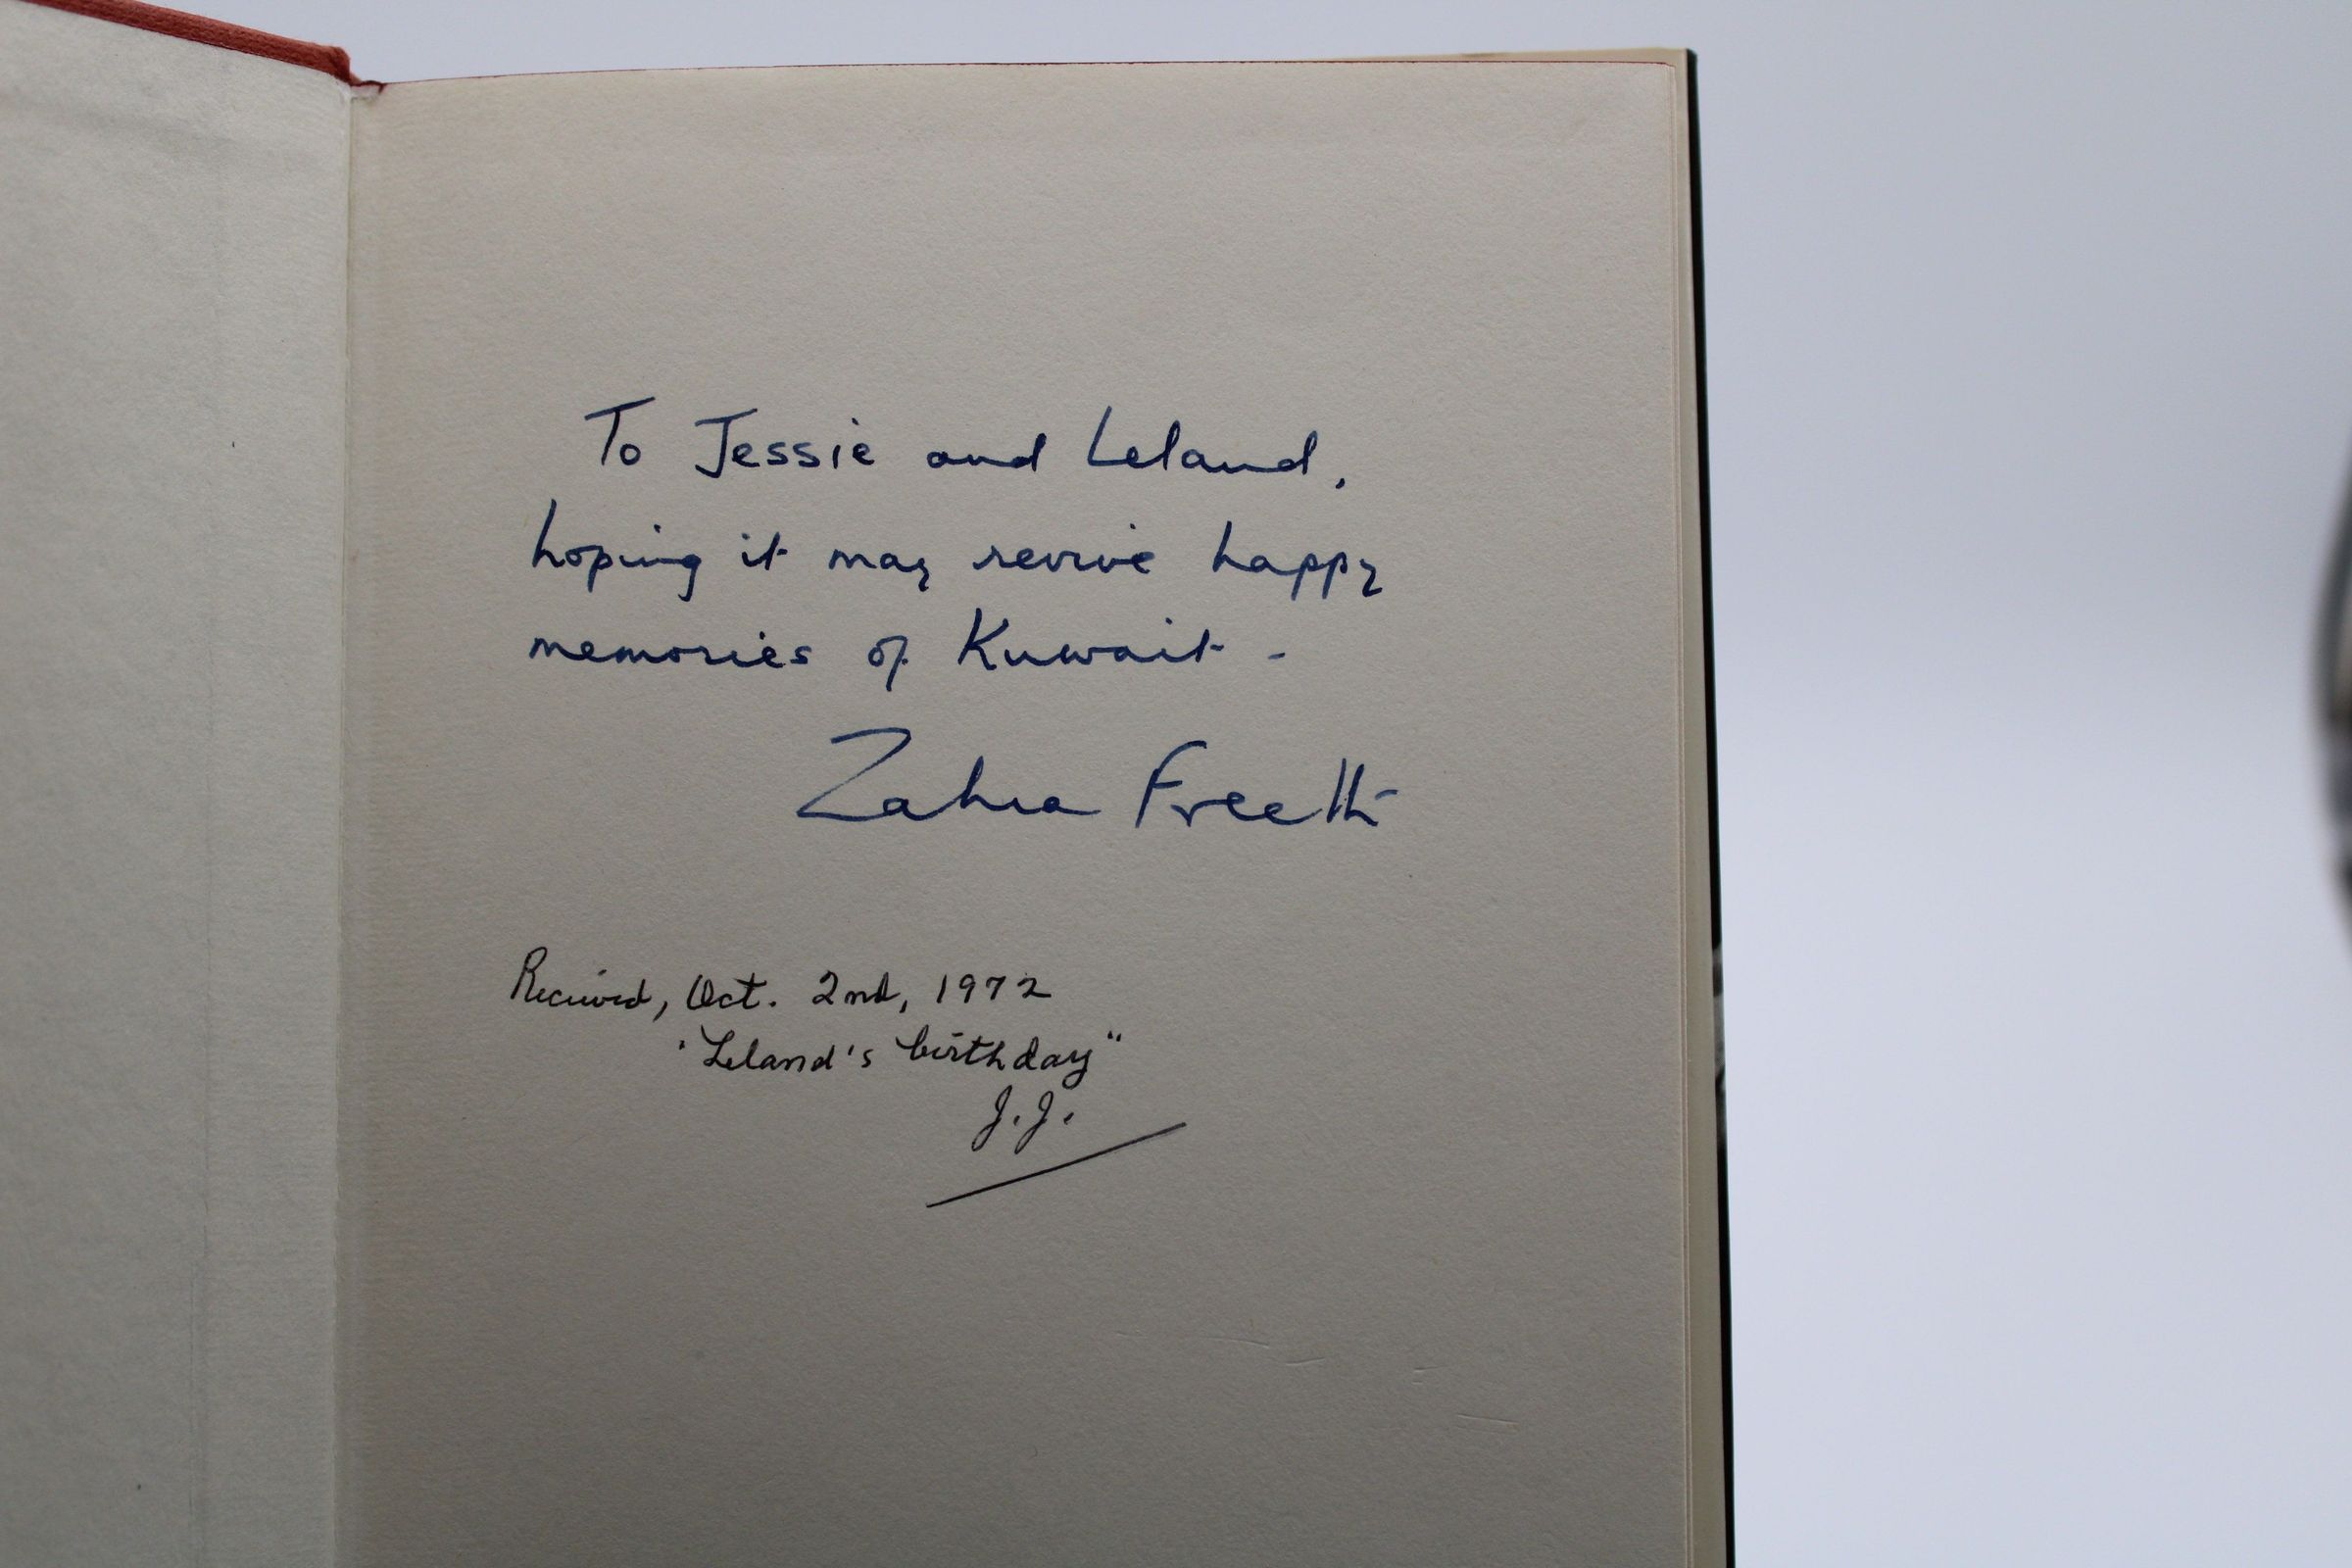 To Jessie and Leland,
hoping it may revive happy
memories of Kuwait -
Zahra Freeth
Received, Oct. 2nd, 1972
"Leland's birthday"
J.J.